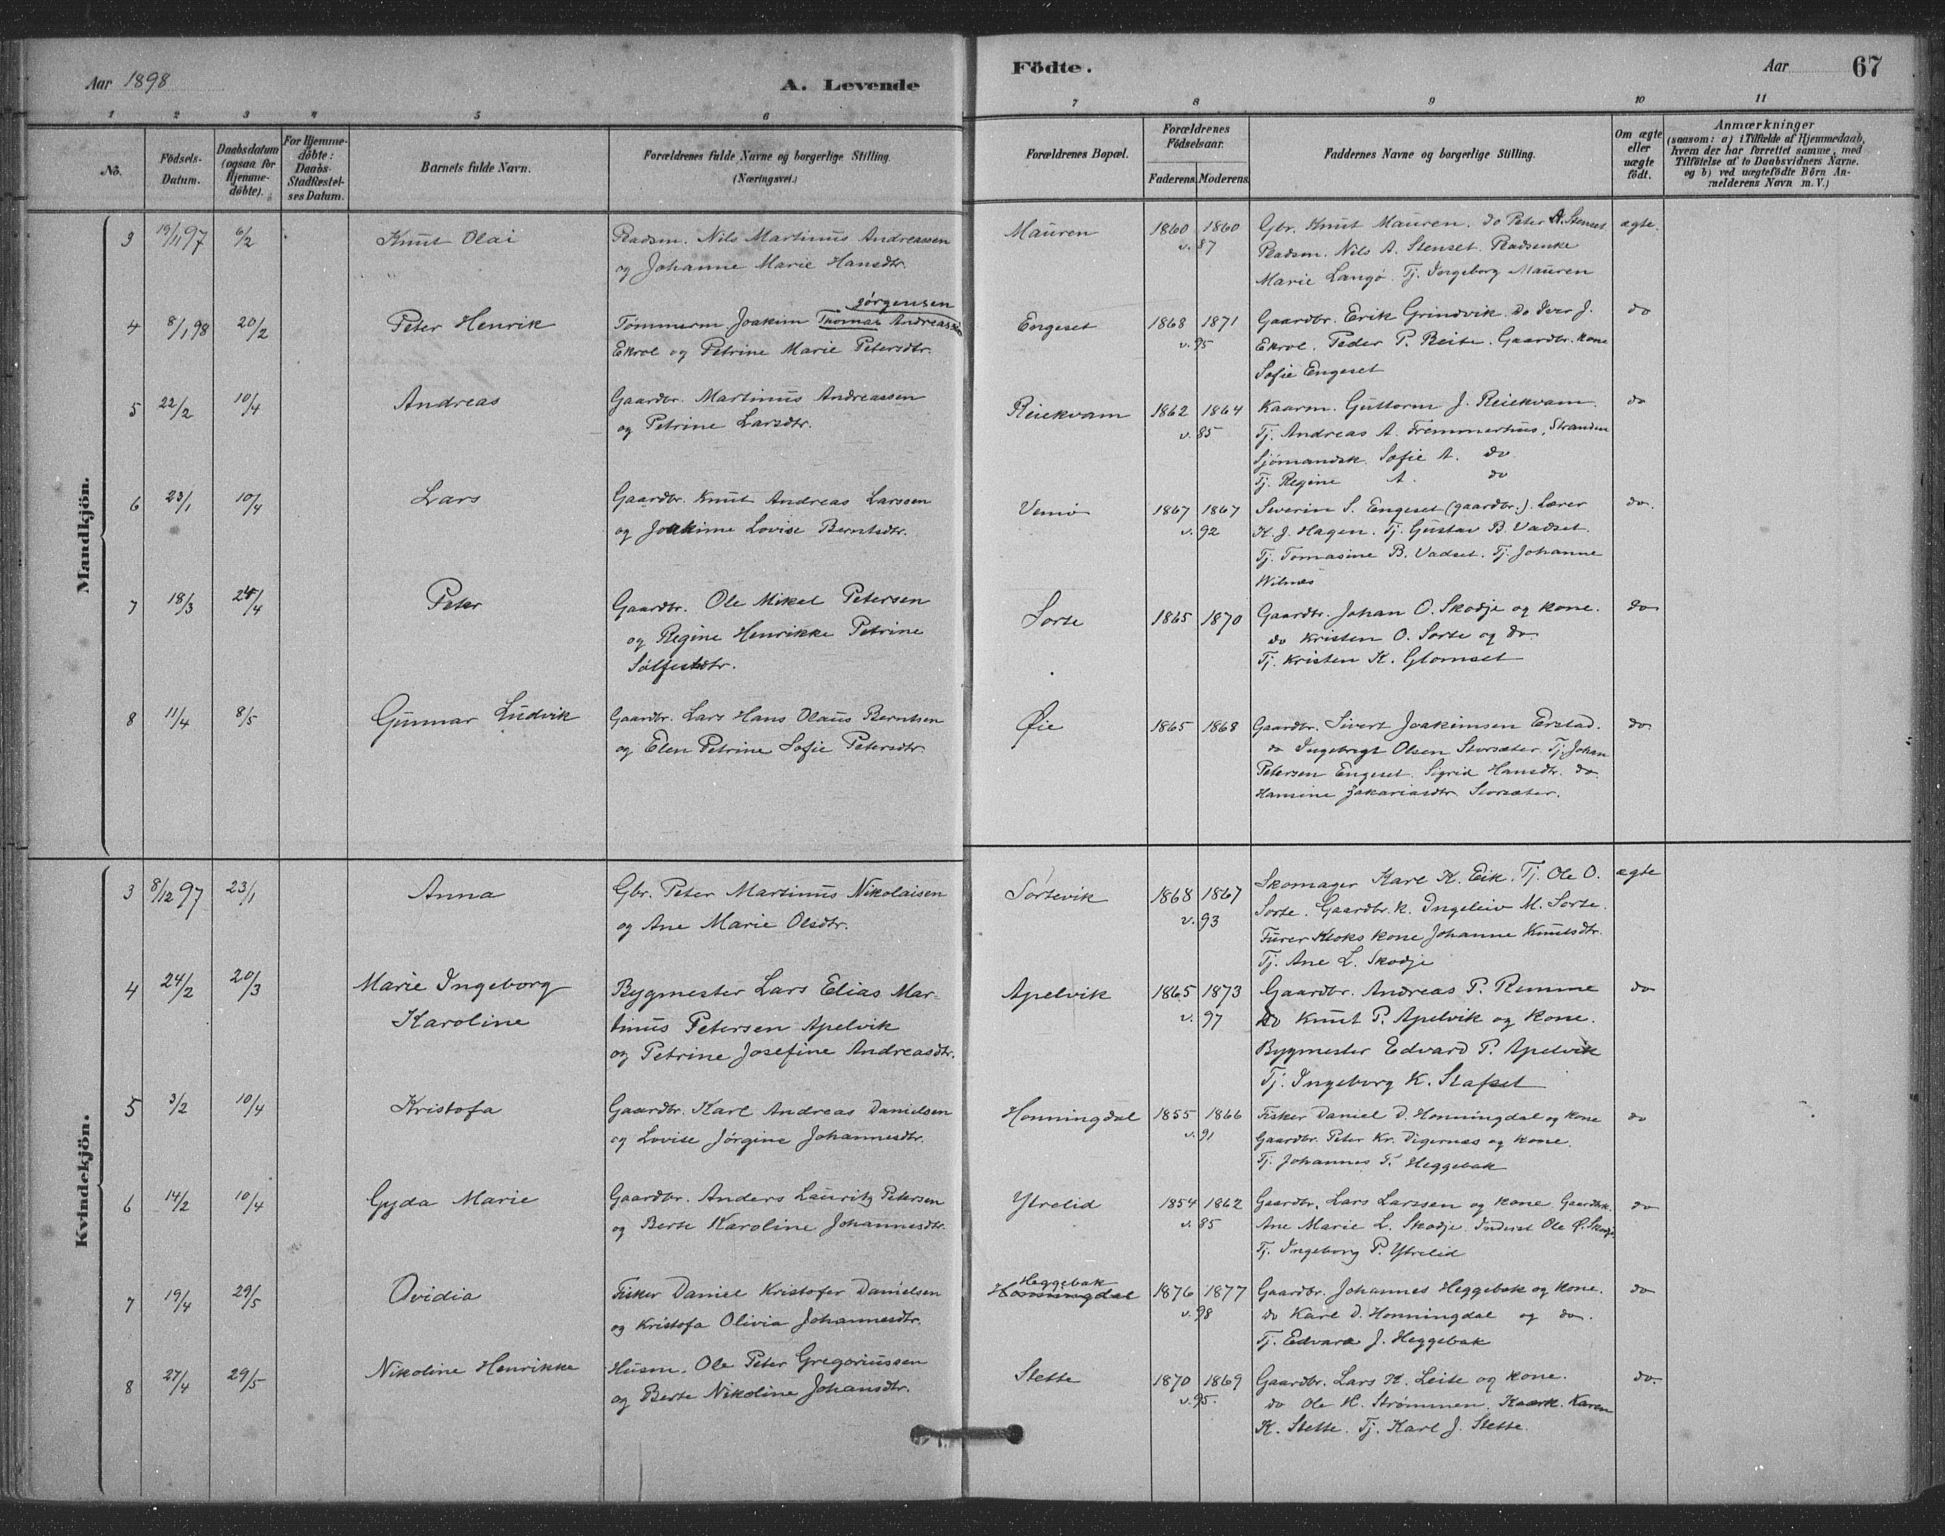 Aar 1898
A. Levende
Födte.
Aar
67
1 2 3 4 5 6 7 8 9 10 11
No.
Födsels-Datum.
Daabsdatum (ogsaa for Hjemme-döbte).
For Hjemme-döbte: Daabs-Stadfæstel-ses Datum.
Barnets fulde Navn.
Forældrenes fulde Navne og borgerlige Stilling. (Næringsvei.)
Forældrenes Bopæl.
Forældrenes Födselsaar.
Faderens. Moderens.
Faddernes Navne og borgerlige Stilling.
Om ægte eller uægte födt.
Anmærkninger
(saasom: a) i Tilfælde af Hjemmedaab, hvem der har forrettet samme, med Tilföielse af to Daabsvidners Navne, og b) ved uægtefödte Börn An-melderens Navn m. V.)
Mandkjön.
3 19/11 97 6/2 Knut Olai Pladsm. Nils Martinus Andreassen Mauren 1860 1860 Gbr. Knut Mauren. do Peter A. Stenset ægte.
og Johanne Marie Hansdtr. v. 87 Pladsm. Nils A. Stenset. Pladsenke
Marie Langø. Tj. Ingeborg Mauren
Jørgensen
4 8/1 98 20/2 Peter Henrik Tømmerm Joakim Thomas Andreassen Engeset 1868 1871 Gaardbr. Erik Grindvik. do Iver J. do
Ekrol og Petrine Marie Petersdtr. v. 95 Ekrol. Peder P. Reite. Gaardbr. kone
Sofie Engeset
5 22/2 10/4 Andreas Gaardbr. Martinus Andreassen Reiekvam 1862 1864 Kaarm. Guttorm J. Reiekvam. do
og Petrine Larsdtr. v. 85 Tj. Andreas A. Fremmerhus, Stranden
Sjömandsk. Sofie A. do
Tj. Regine A. do
6 23/1 10/4 Lars Gaardbr. Knut Andreas Larssen Vemø 1867 1867 Severin S. Engeset (gaardbr.). Lærer do.
og Joakime Lovise Berntsdtr. v. 92 K. J. Hagen. Tj. Gustav B. Vadset.
Tj. Tomasine B. Vadset. Tj. Johanne
Wilnes
7 18/3 24/4 Peter Gaardbr. Ole Mikal Petersen Sorte 1865 1870 Gaardbr. Johan O. Skodje og kone. do
og Regine Henrikke Petrine do Kristen O. Sorte og do
Sølfestdtr. Tj. Kristen K. Glomset
8 11/4 8/5 Gunnar Ludvik Gaardbr. Lars Hans Olaus Berntsen Øie 1865 1868 Gaardbr. Sivert Joakimsen Erstad. do
og Elen Petrine Sofie Petersdtr. do Ingebrigt Olsen Storsæter. Tj. Johan
Petersen Engeset. Sigrid Hansdtr. do.
Hansine Zakariasdtr Storsæter.
Kvindekjön.
3 8/12 97 23/1 Anna Gbr. Peter Martinus Nikolaisen Sortevik 1868 1867 Skomager Karl K. Eik. Tj. Ole O. ægte
og Ane Marie Olsdtr. v. 93 Sorte. Gaardbr. k. Ingeleiv M. Sorte.
kone Johanne Knutsdtr.
Tj. Ane L. Skodje
4 24/2 20/3 Marie Ingeborg Bygmester Lars Elias Mar- Apelvik 1865 1873 Gaardbr. Andreas P. Remme do
Karoline tinus Petersen Apelvik v. 97 do Knut P. Apelvik og kone.
og Petrine Josefine Andreasdtr. Bygmester Edvard P. Apelvik
Tj. Ingeborg K. Stafset
5 3/2 10/4 Kristofa Gaardbr. Karl Andreas Danielsen Honningdal 1855 1866 Fisker Daniel D. Honningdal og kone do
og Lovise Jørgine Johannesdtr. v. 91 Gaardbr. Peter Kr. Digernæs og kone.
Tj. Johannes F. Heggebak
6 14/2 10/4 Gyda Marie Gaardbr. Anders Lauritz Petersen Ytrelid 1854 1862 Gaardbr. Lars Larssen og kone Gaardbk. do
og Berte Karoline Johannesdtr. v. 85 Ane Marie L. Skodje. Inderst Ole Ø. Skodje
Tj. Ingeborg P. Ytrelid
Heggebak
7 19/4 29/5 Ovidia Fisker Daniel Kristofer Danielsen Honningdal 1876 1877 Gaardbr. Johannes Heggebak og kone. do
og Kristofa Olivia Johannesdtr. v. 98 do Karl D. Honningdal og do.
Tj. Edvard J. Heggebak
8 27/4 29/5 Nikoline Henrikke Husm. Ole Peter Gregoriussen Slette 1870 1869 Gaardbr. Lars K. Leite og kone. do.
og Berte Nikoline Johansdtr. v. 95. do Ole H. Strømmen. Kaark. Karen
K. Slette. Tj. Karl J. Slette.